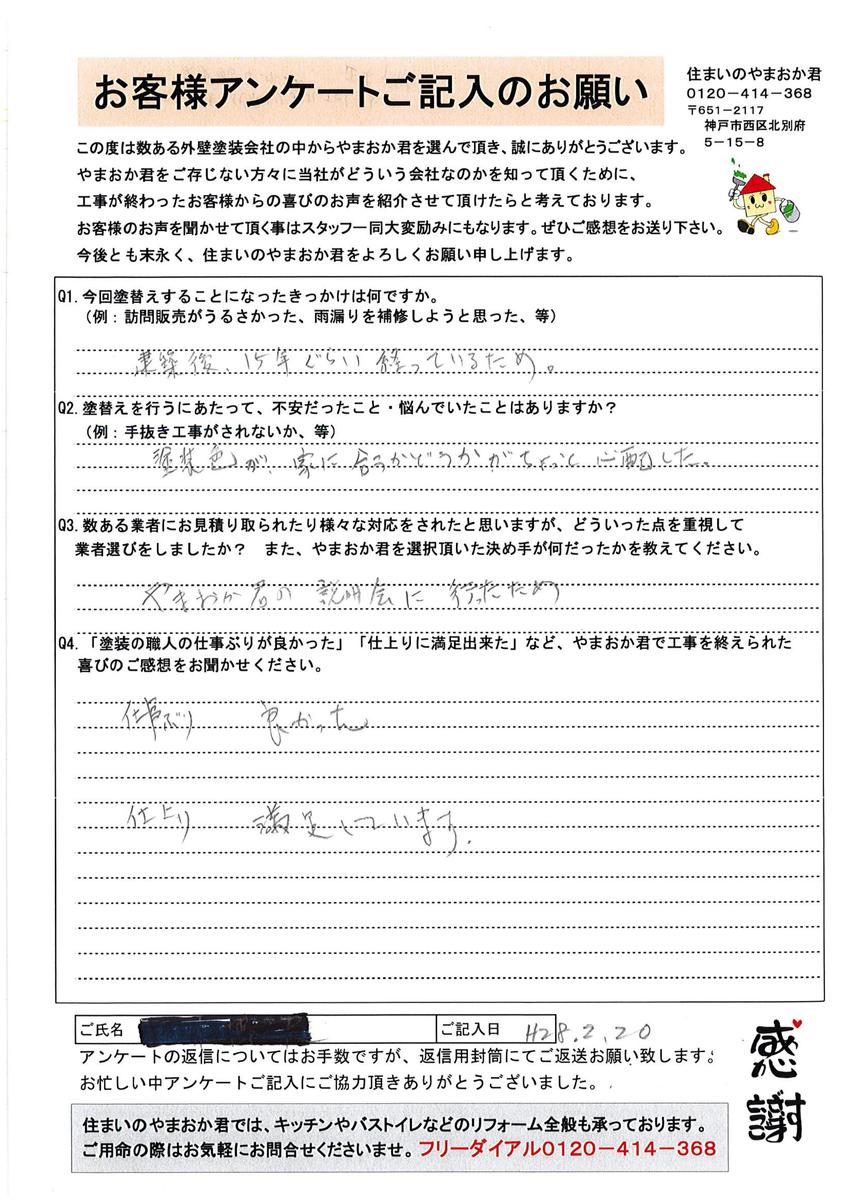 お客様アンケートご記入のお願い
住まいのやまおか君
0120-414-368
〒651-2117
神戸市西区北別府
5-15-8
この度は数ある外壁塗装会社の中からやまおか君を選んで頂き、誠にありがとうございます。
やまおか君をご存じない方々に当社がどういう会社なのかを知って頂くために、
工事が終わったお客様からの喜びのお声を紹介させて頂けたらと考えております。
お客様のお声を聞かせて頂く事はスタッフ一同大変励みにもなります。ぜひご感想をお送り下さい。
今後とも末永く、住まいのやまおか君をよろしくお願い申し上げます。
Q1. 今回塗替えすることになったきっかけは何ですか。
(例：訪問販売がうるさかった、雨漏りを補修しようと思った、等)
建築後、15年ぐらい経っているため。
Q2. 塗替えを行うにあたって、不安だったこと・悩んでいたことはありますか？
(例：手抜き工事がされないか、等)
塗装色が、家に合うかどうかがちょっと心配した。
Q3. 数ある業者にお見積り取られたり様々な対応をされたと思いますが、どういった点を重視して
業者選びをしましたか？ また、やまおか君を選択頂いた決め手が何だったかを教えてください。
やまおか君の説明会に行ったため
Q4. 「塗装の職人の仕事ぶりが良かった」「仕上りに満足出来た」など、やまおか君で工事を終えられた
喜びのご感想をお聞かせください。
仕事ぶり 良かった
仕上り 満足しています.
ご氏名
ご記入日 H28.2.20
アンケートの返信についてはお手数ですが、返信用封筒にてご返送お願い致します。
お忙しい中アンケートご記入にご協力頂きありがとうございました。
感謝
住まいのやまおか君では、キッチンやバストイレなどのリフォーム全般も承っております。
ご用命の際はお気軽にお問合せくださいませ。フリーダイアル0120-414-368